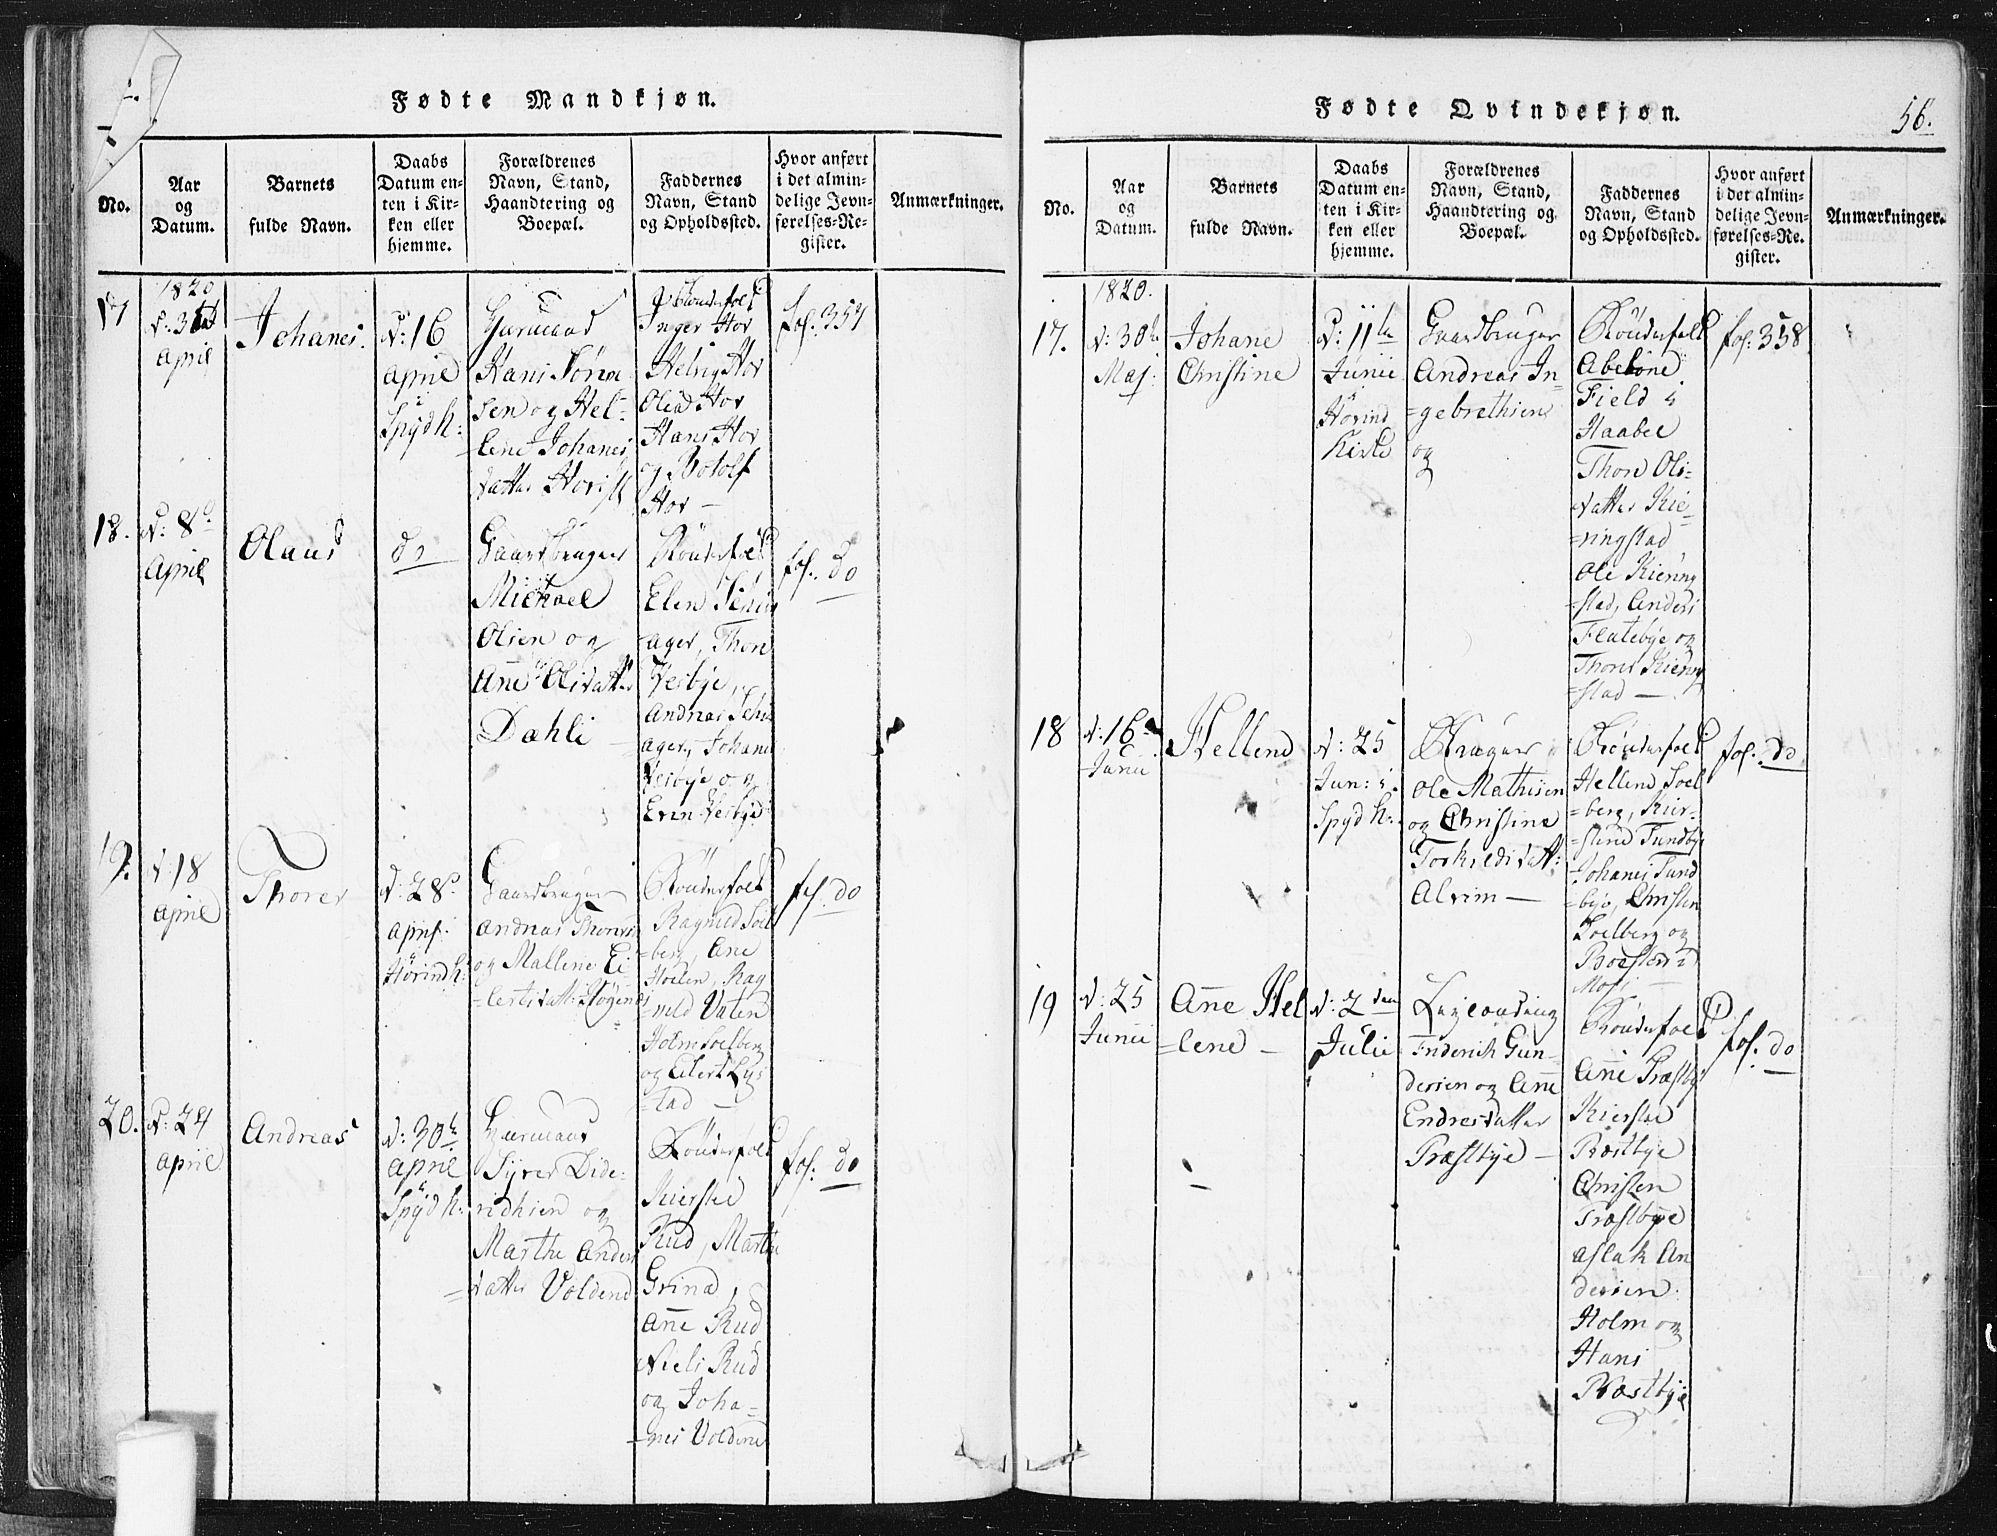 Fødte Mandkjøn.
No.
Aar
og
Datum.
Barnets
fulde Navn.
Daabs
Datum en-
ten i Kir-
ken eller
hjemme.
Forældrenes
Navn, Stand,
Haandtering og
Boepæl.
Faddernes
Navn, Stand
og Opholdssted.
Hvor anført
i det almin-
delige Jevn-
førelses-Re-
gister.
Anmærkninger.
17
1820
April
Johanes.
d: 16
April
Spyd k:
Hans Søren
sen og Hel-
lene Johanes
datter
Bönderfolk
Inger Hov
Helvig Hov
Olia Hov
Hans Hov
og Botolf
Hov —
fol: 357
18.
d: 8
April
Olaus
do
Gaardbruger
Michael
Olsen og
Ane Olsdatter
Dahli —
Bönderfolk
Elen Schie
=ager, Thon
Vesbye,
Andreas Schie
ager, Johan
Vesbye og
Even Vesbye
fol: do
19.
d: 18
April
Thorer
d: 28
April
Hörind k:
Gaardbruger
Andreas Thores
og Mallene Ei
=lertsdatt:
Bönderfolk
Ragnild Soel
=berg, Ane
Hoelen, Rag
=nild Vaten
Holm Soelberg
og Eilert Lys
=tad —
fol: do
20.
d: 24
April
Andreas
d: 30te
April
Spyd k:
Syver Dide-
ridhsen og
Marthe Anders
=datter Voldend
Bönderfolk
Kierste
Rud, Marthe
Grina,
Ane Rud
Niels Rud
og Joha-
=nes Voldene
fol: do
Fødte Qvindekjøn.
56.
No.
Aar
og
Datum.
Barnets
fulde Navn.
Daabs
Datum en-
ten i Kir-
ken eller
hjemme.
Forældrenes
Navn, Stand,
Haandtering og
Boepæl.
Faddernes
Navn, Stand
og Opholdssted.
Hvor anført
i det almin-
delige Jevn-
førelses-Re-
gister.
Anmærkninger.
17.
1820.
d: 30te
Maj:
Johane
Christine
d: 11te
Junii
Hörind
Kirke
Gaardbruger
Andreas In-
=gebrethsen
og
Bönderfolk
Abelone
Field i
Haabel
Thon Ols-
datter Kie-
=ringstad
Ole Kiering
=stad, Anders
Flatebye og
Thores Kiering
=stad —
fol: 358
18
d: 16
Junii
Hellene
d: 25
Jun: i
Spyd k:
Ole Mathisen
og Christine
Torkildsdatt:
Alvim —
Bönderfolk
Hellene Soel
=berg, Kier-
=stine Tundbye
Johanes Tund
=bye, Christen
Soelberg og
fol: do
19
d: 25
Junii
Ane Hel
=lene —
d: 2den
Julii
Friderich Gun-
dersen og Ane
Endresdatter
Præstbye —
Bönderfolk
Ane Præstby
Kierstie
Præstbye
Christen
Præstbye
Aslak An
dersen
Holm og
Hans
Præstbye
fol: do